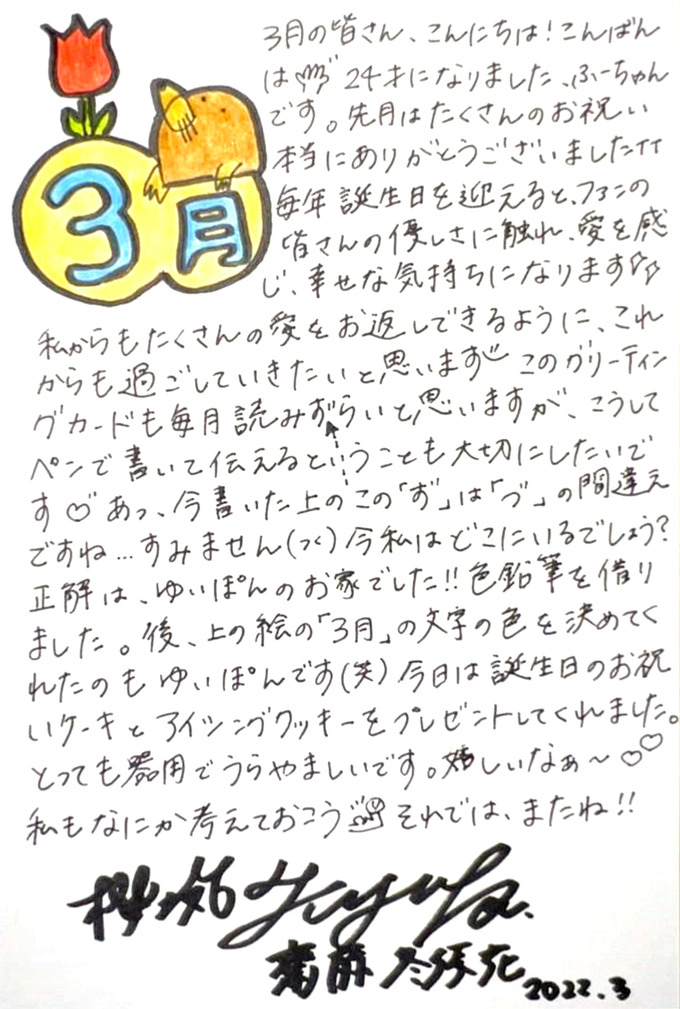 3月の皆さん、こんにちは!こんばん
は 24才になりました、ふーちゃん
です。先月はたくさんのお祝い
本当にありがとうございましたTT
毎年誕生日を迎えると、ファンの
皆さんの優しさに触れ、愛を感
じ、幸せな気持ちになります
3月
私からもたくさんの愛をお返しできるように、これ
からも過ごしていきたいと思います このグリーティン
グカードも毎月読みずらいと思いますが、こうして
ペンで書いて伝えるということも大切にしたいで
す♡あっ、今書いた上のこの「ず」は「づ」の間違え
ですね...すみません(つく)今私はどこにいるでしょう?
正解は、ゆいぽんのお家でした!!色鉛筆を借り
ました。後、上の絵の「3月」の文字の色を決めてく
れたのもゆいぽんです(笑)今日は誕生日のお祝
いケーキとアイシングクッキーをプレゼントしてくれました。
とっても器用でうらやましいです。嬉しいなぁ〜♡♡
私もなにか考えておこう それでは、またね!!
齋藤冬優花 2022.3